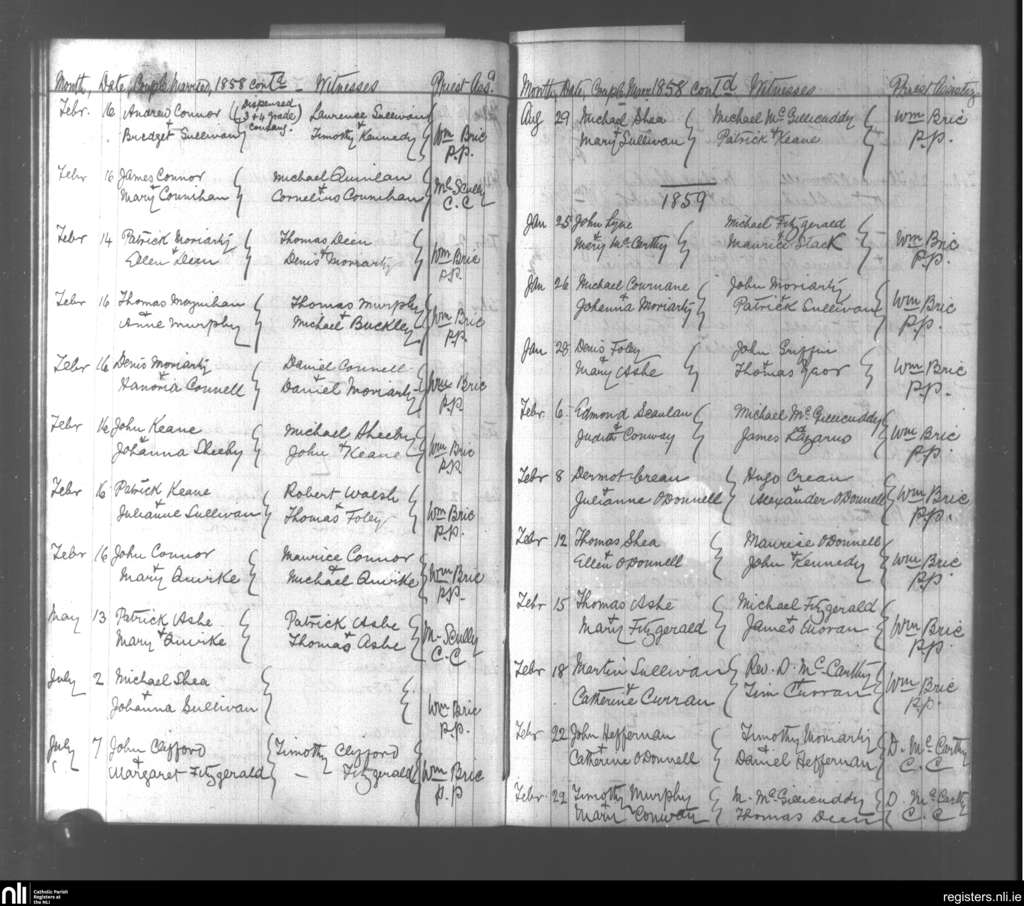 Month, Date, Couple Married, 1858 contd Witnesses Priest Ass.
Febr. 16 Andrew Connor (Dispensed 3 & 4 grade Consang.) Lawrence Sullivan
Bridget Sullivan & Timothy Kennedy Wm Bric P.P.
Febr 16 James Connor Michael Quinlan
Mary Counihan Cornelius Counihan Ml Scully C.C
Febr 14 Patrick Moriarty Thomas Deen
Ellen & Deen Denis & Moriarty Wm Bric P.P.
Febr 16 Thomas Moynihan Thomas Murphy
& Anne Murphy & Michael Buckley Wm Bric P.P.
Febr 16 Denis Moriarty Daniel Connell
& Hanoria Connell & Daniel Moriarty Wm Bric P.P.
Febr 16 John Keane Michael Sheehy
& Johanna Sheehy John & Keane Wm Bric P.P.
Febr 16 Patrick Keane Robert Walsh
Julianne Sullivan Thomas & Foley Wm Bric P.P.
Febr 16 John Connor Maurice Connor
& Mary Quirke & Michael Quirke Wm Bric P.P.
May 13 Patrick Ashe Patrick Ashe
Mary & Quirke Thomas & Ashe M. Scully C.C
July 2 Michael Shea
Johanna Sullivan Wm Bric P.P.
July 7 John Clifford Timothy Clifford
& Margaret Fitzgerald – Fitzgerald Wm Bric P.P
Month, Date, Couple Marrd 1858 contd Witnesses Priest
Aug 29 Michael Shea Michael McGillicuddy Wm Bric
Mary Sullivan Patrick & Keane P.P.
1859
Jan 25 John Lyne Michael Fitzgerald
& Mary McCarthy Maurice Slack Wm Bric P.P.
Jan 26 Michael Cournane John Moriarty
& Johanna Moriarty Patrick Sullivan Wm Bric P.P.
Jan 28 Denis Foley John Griffin
& Mary Ashe & Thomas Wm Bric P.P.
Febr 6 Edmond Scanlan Michael McGillicuddy
Judith & Conway James & Lazarus Wm Bric P.P.
Febr 8 Dermot Crean Hugo Crean
& Julianne ODonnell & Alexander ODonnell Wm Bric P.P.
Febr 12 Thomas Shea Maurice ODonnell
Ellen ODonnell John & Kennedy Wm Bric P.P.
Febr 15 Thomas Ashe Michael Fitzgerald
& Mary Fitzgerald James & Moran Wm Bric P.P.
Febr 18 Martin Sullivan Rev. D. McCarthy
& Catherine Curran Tim Curran Wm Bric P.P.
Febr 22 John Heffernan Timothy Moriarty
& Catherine ODonnell Daniel & Heffernan D. McCarthy C.C
Febr. 22 Timothy Murphy M. McGillicuddy
Mary & Conway Thomas Deen D. McCarthy C.C
nli Catholic Parish Registers at the NLI
registers.nli.ie